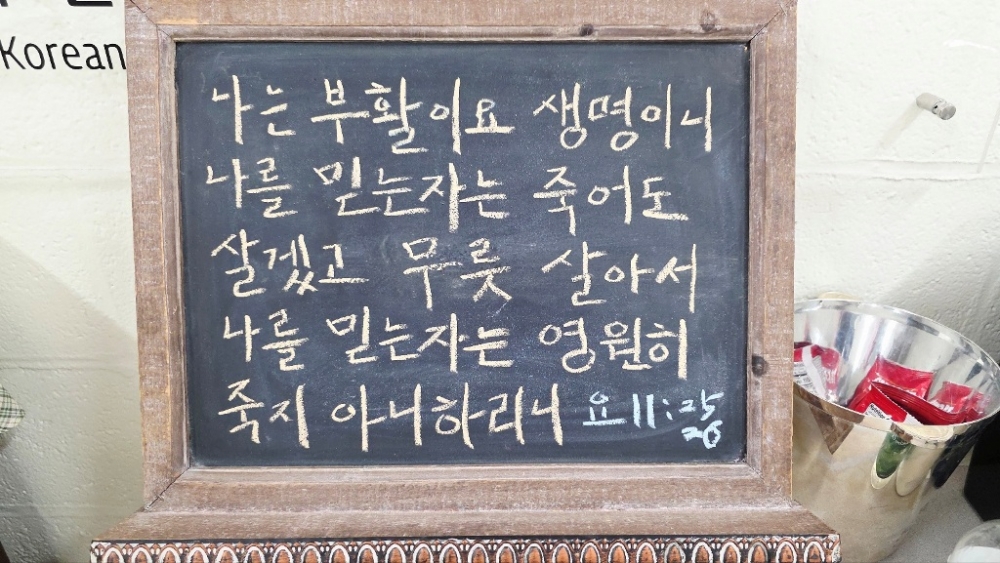 Korean
나는 부활이요 생명이니
나를 믿는자는 죽어도
살겠고 무릇 살아서
나를 믿는자는 영원히
죽지 아니하리니 요 11:25
26